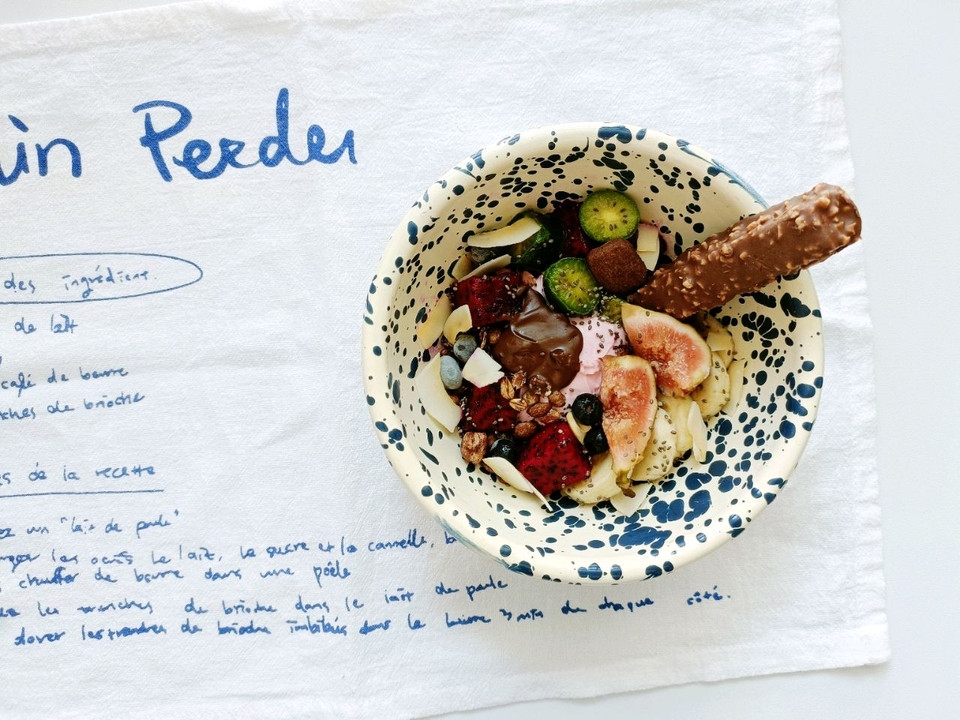 in Perdu
des ingrédient.
de lait
café de beurre
ches de brioche
s de la recette
ez un "lait de poule"
les oeufs le lait, le sucre et la cannelle,
chauffer de beurre dans une poêle
les tranches de brioche dans le lait de poule
dorer les tranches de brioche imbibées dans le beurre 3 min de chaque côté.